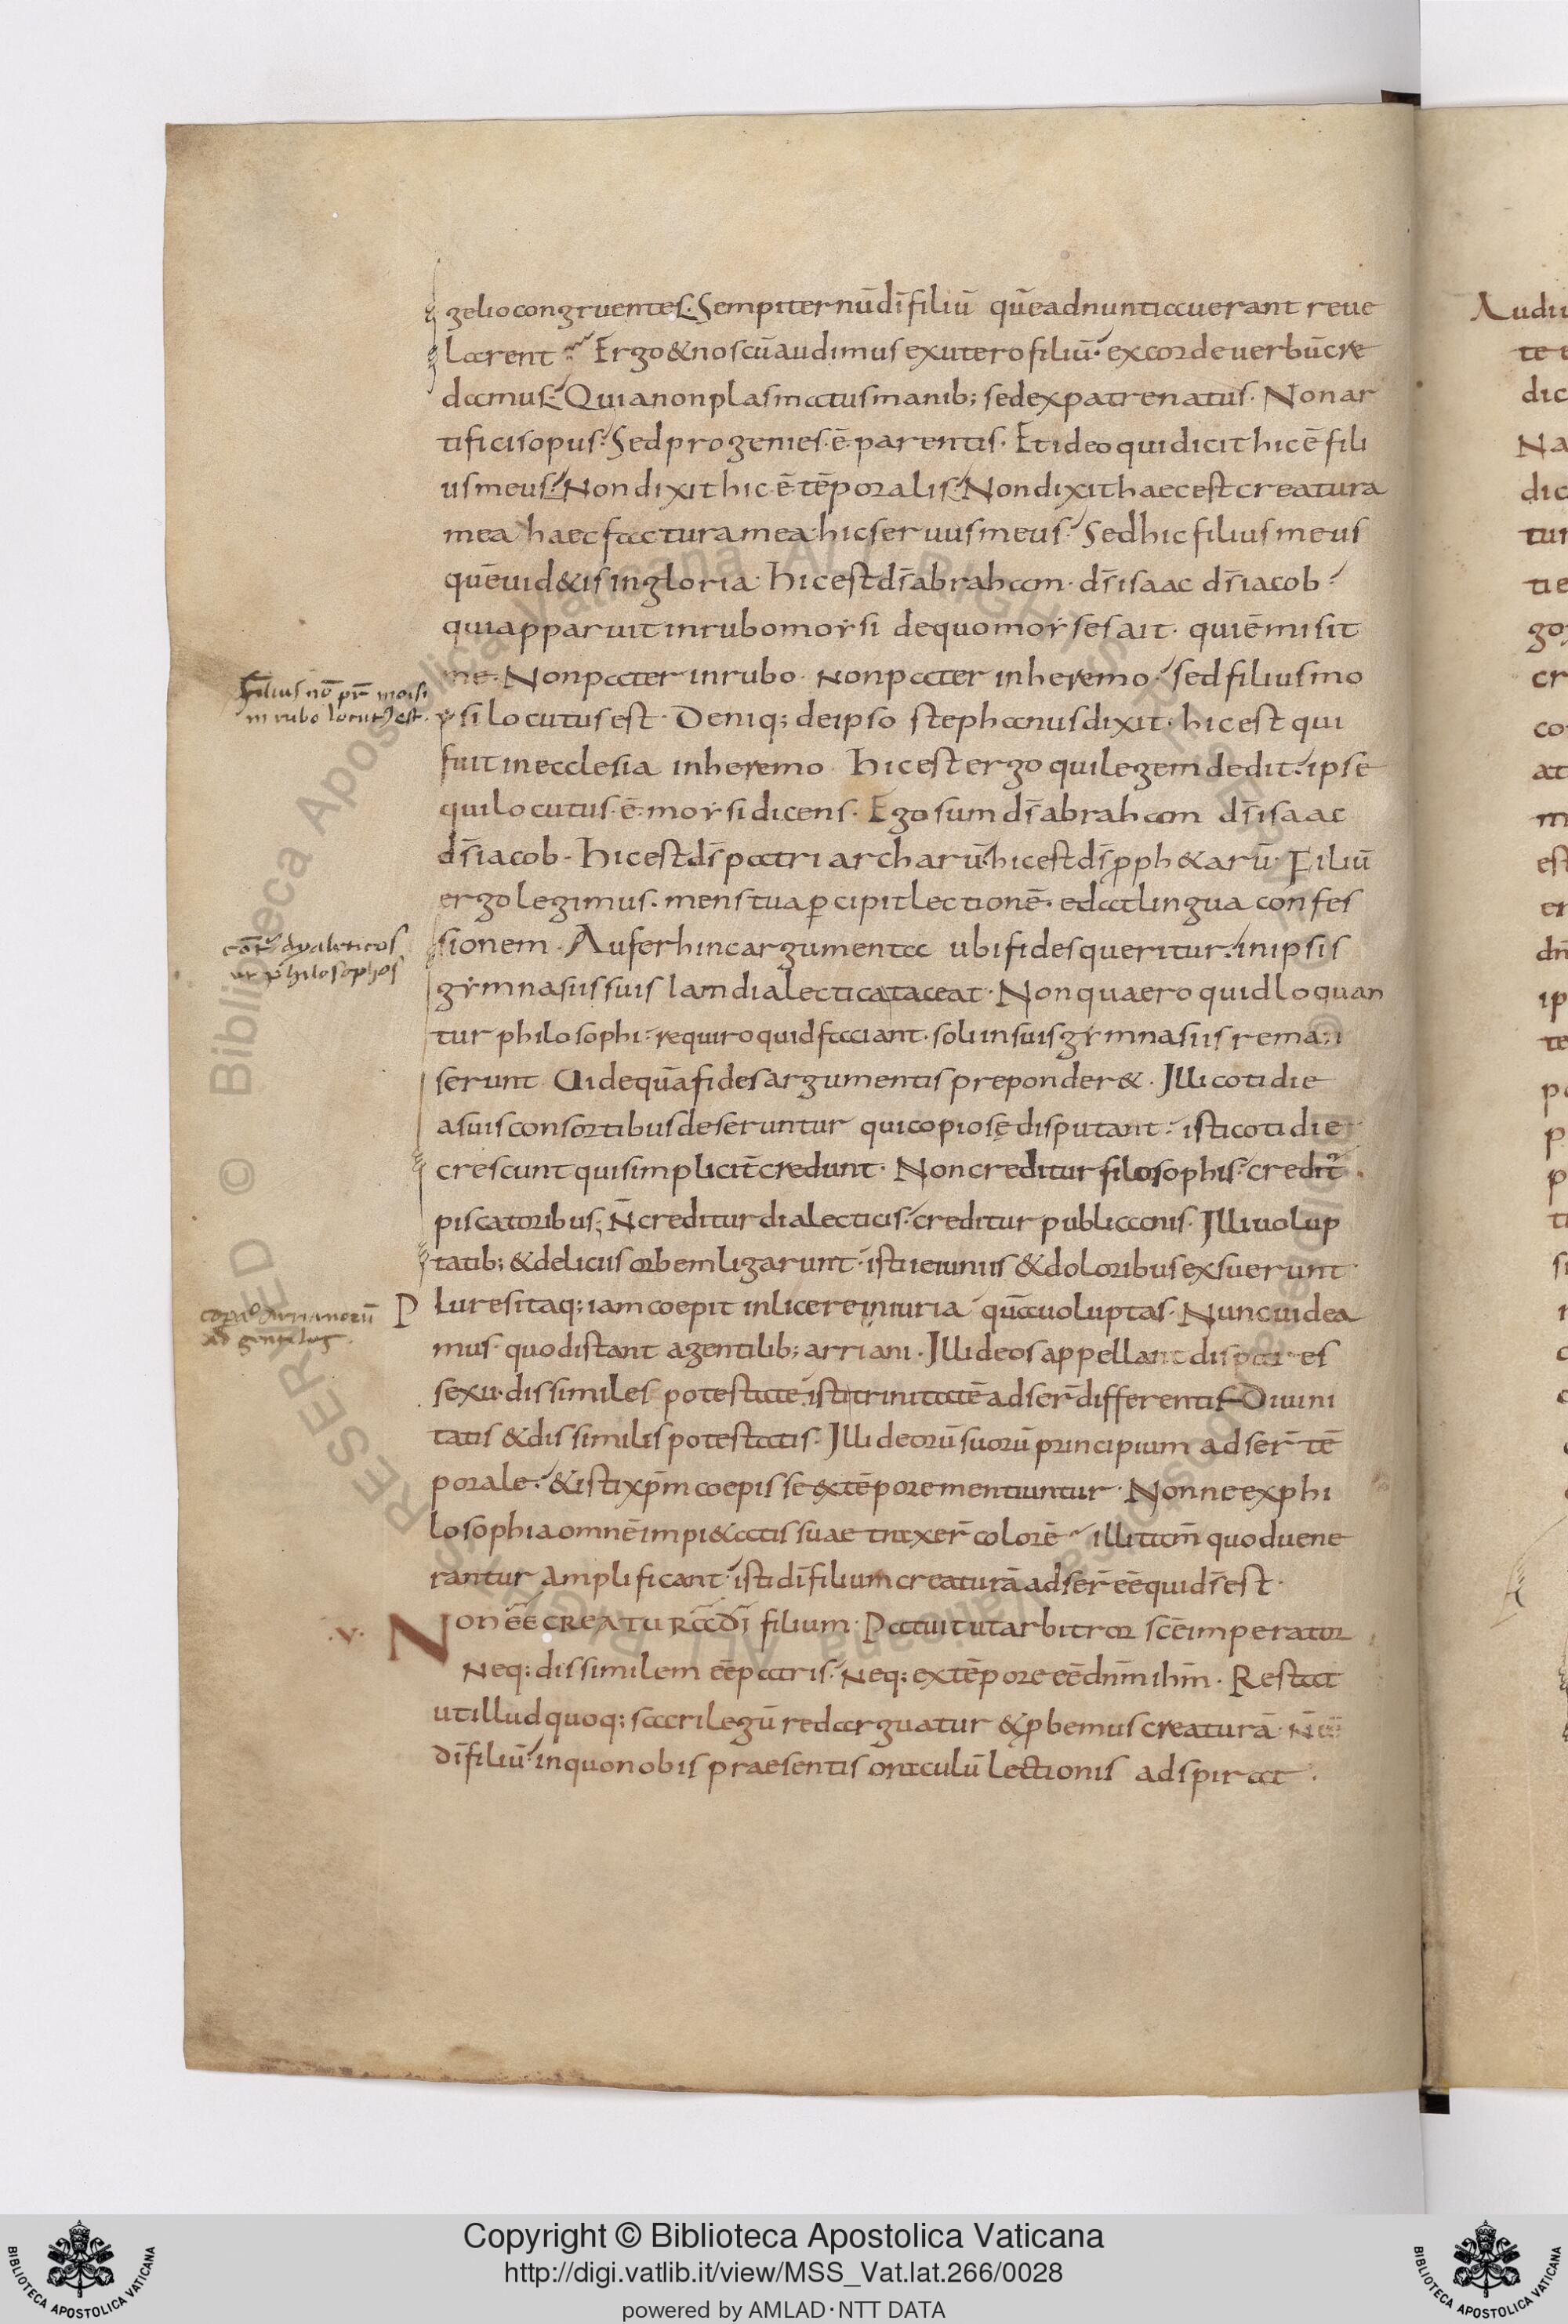 zelio congruentes. Sempiternū dī filiū quē adnuntiauerant reue
larent Ergo & nos cū audimus ex utero filiū. ex corde uerbū cre
damus. Quia non plasmatus manib; sed ex patre natus. Non ar
tificis opus. Sed progenies .ē. parentis. Et ideo qui dicit hic ē fili
us meus. Non dixit hic .ē. tēporalis. Non dixit haec est creatura
mea haec factura mea. hic seruus meus. Sed hic filius meus
quē uid&is in gloria. hic est dr̄ abraham. dr̄ isaac dr̄ iacob.
qui apparuit in rubo moẏsi de quo moẏses ait. qui ē misit
me. Non pater in rubo. non pater in heremo. sed filius mo
ẏsi locutus est. Deniq; de ipso stephanus dixit. hic est qui
fuit in ecclesia in heremo. hic est ergo qui legem dedit. ipse
qui locutus .ē. moẏsi dicens. Ego sum dr̄ abraham dr̄ isaac
dr̄ iacob. hic est dr̄ patriarcharū. hic est dr̄ pph&arū. Filiū
ergo legimus. mens tua pcipit lectionē. edat lingua confes
sionem. Aufer hinc argumenta ubi fides queritur. in ipsis
gẏmnasiis suis lam dialectica taceat. Non quaero quid loquan
tur philosophi. requiro quid faciant. soli in suis gẏmnasiis rema
serunt Uide quā fides argumentis preponder&. Illi cotidie
a suis consortibus deseruntur qui copiose disputant. isti cotidie
crescunt qui simplicit̄ credunt. Non creditur filosophis. credit̄
piscatoribus; N̄ creditur dialecticis. creditur publicanis. Illi uolup
tatib; & deliciis orbem ligarunt. isti ieiuniis & doloribus exsuerunt
Plures itaq; iam coepit inlicere iniuria quā uoluptas. Nunc uidea
mus. quo distant a gentilib; arriani. Illi deos appellant dispares
sexu. dissimiles potestate. isti trinitatē adser̄ differentis Diuini
tatis & dissimilis potestatis. Illi deorū suorū principium adser̄ tē
porale. & isti xp̄m coepisse ex tēpore mentiuntur. Nonne ex phi
losophia omnē impi&atis suae traxer̄ colorē illi tam̄ quod uene
rantur amplificant. isti dī filium creaturā adser̄ eē qui dr̄ est.
.v. Non eē CREATURā dī filium. Patuit ut arbitror scē imperator
Neq; dissimilem eē patris. Neq; ex tēpore eē dn̄m ihm̄. Restat
ut illud quoq; sacrilegū redarguatur & pbemus creaturā
dī filiū in quo nobis praesentis oraculū lectionis adspirat.
Filius nō pr̄ moisi
in rubo locut' est.
cōt dyaleticos
et philosophos
Copyright © Biblioteca Apostolica Vaticana
http://digi.vatlib.it/view/MSS_Vat.lat.266/0028
powered by AMLAD·NTT DATA
BIBLIOTECA APOSTOLICA VATICANA
BIBLIOTECA APOSTOLICA VATICANA